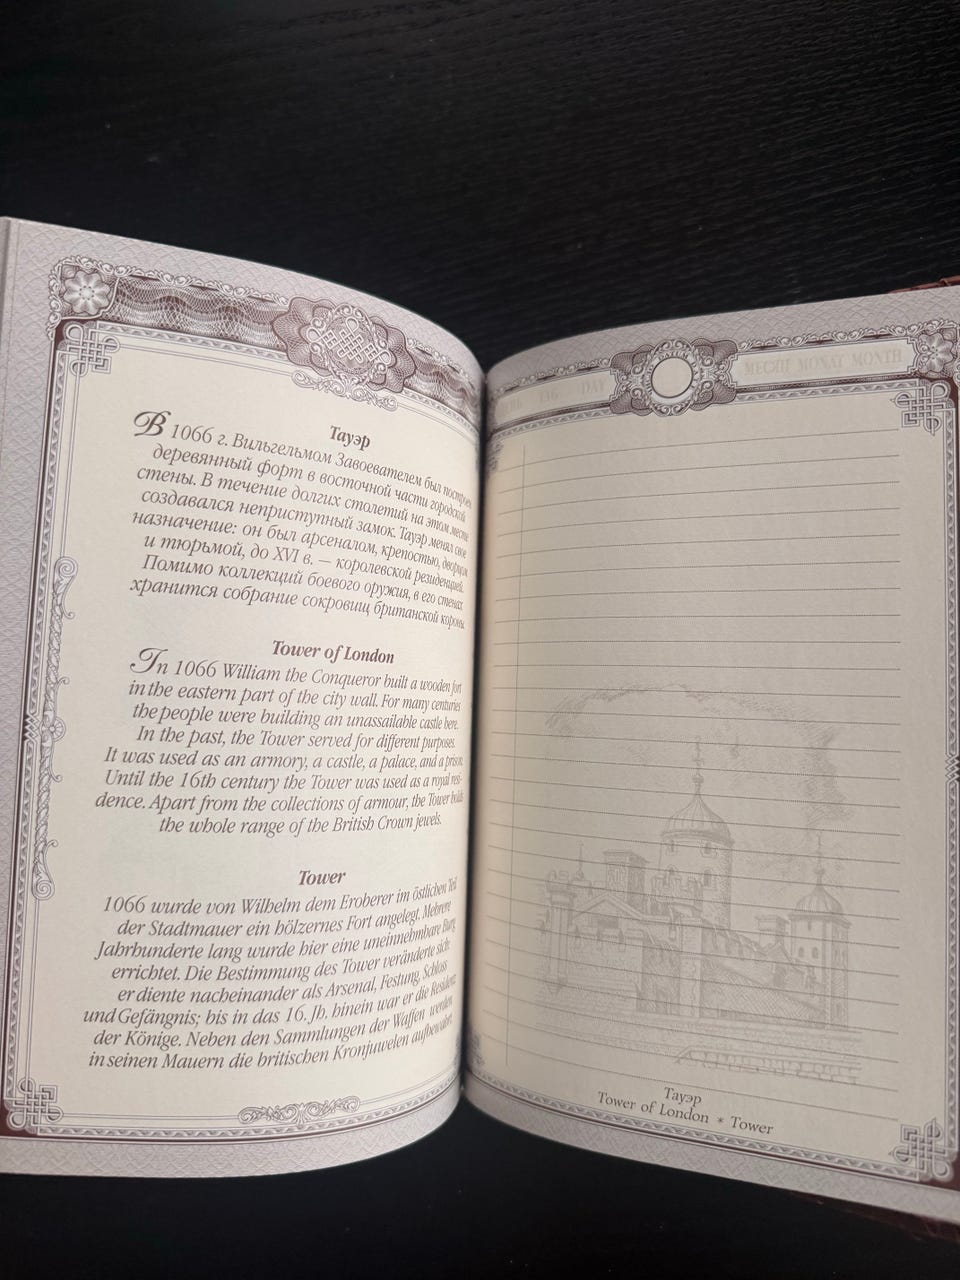 Тауэр
В 1066 г. Вильгельмом Завоевателем был построен
деревянный форт в восточной части городской
стены. В течение долгих столетий на этом месте
создавался неприступный замок. Тауэр менял свое
назначение: он был арсеналом, крепостью, дворцом
и тюрьмой, до XVI в. — королевской резиденцией.
Помимо коллекций боевого оружия, в его стенах
хранится собрание сокровищ британской короны.
Tower of London
In 1066 William the Conqueror built a wooden fort
in the eastern part of the city wall. For many centuries
the people were building an unassailable castle here.
In the past, the Tower served for different purposes.
It was used as an armory, a castle, a palace, and a prison.
Until the 16th century the Tower was used as a royal resi-
dence. Apart from the collections of armour, the Tower holds
the whole range of the British Crown jewels.
Tower
1066 wurde von Wilhelm dem Eroberer im östlichen Teil
der Stadtmauer ein hölzernes Fort angelegt. Mehrere
Jahrhunderte lang wurde hier eine uneinnehmbare Burg
errichtet. Die Bestimmung des Tower veränderte sich:
er diente nacheinander als Arsenal, Festung, Schloss
und Gefängnis; bis in das 16. Jh. hinein war er die Residenz
der Könige. Neben den Sammlungen der Waffen werden
in seinen Mauern die britischen Kronjuwelen aufbewahrt.
ДЕНЬ TAG DAY
МЕСЯЦ MONAT MONTH
Тауэр
Tower of London * Tower